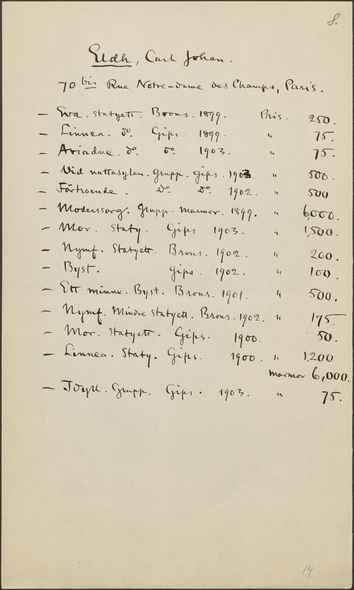 8.
Eldh, Carl Johan.
70 bis Rue Notre-dame des Champs, Paris.
— Eva. statyett. Brons. 1899. Pris. 250.
— Linnea. do. Gips. 1899. " 75.
— Ariadne. do. do. 1903. " 75.
— Vid nattasylen. grupp. gips. 1903. " 500.
— Förtroende. Do. Do. 1902. " 500
— Modersorg. Grupp. marmor. 1899. " 6000.
— Mor. Staty. Gips 1903. " 1,500.
— Nymf. Statyett. Brons. 1902. " 200.
— Byst. gips. 1902. " 100.
— Ett minne. Byst. Brons. 1901. " 500.
— Nymf. Mindre statyett. Brons. 1902. " 175
— Mor. Statyett. Gips. 1900. 50.
— Linnea. Staty. Gips. 1900. " 1,200
marmor 6,000.
— Idyll. Grupp. Gips. 1903. " 75.
14